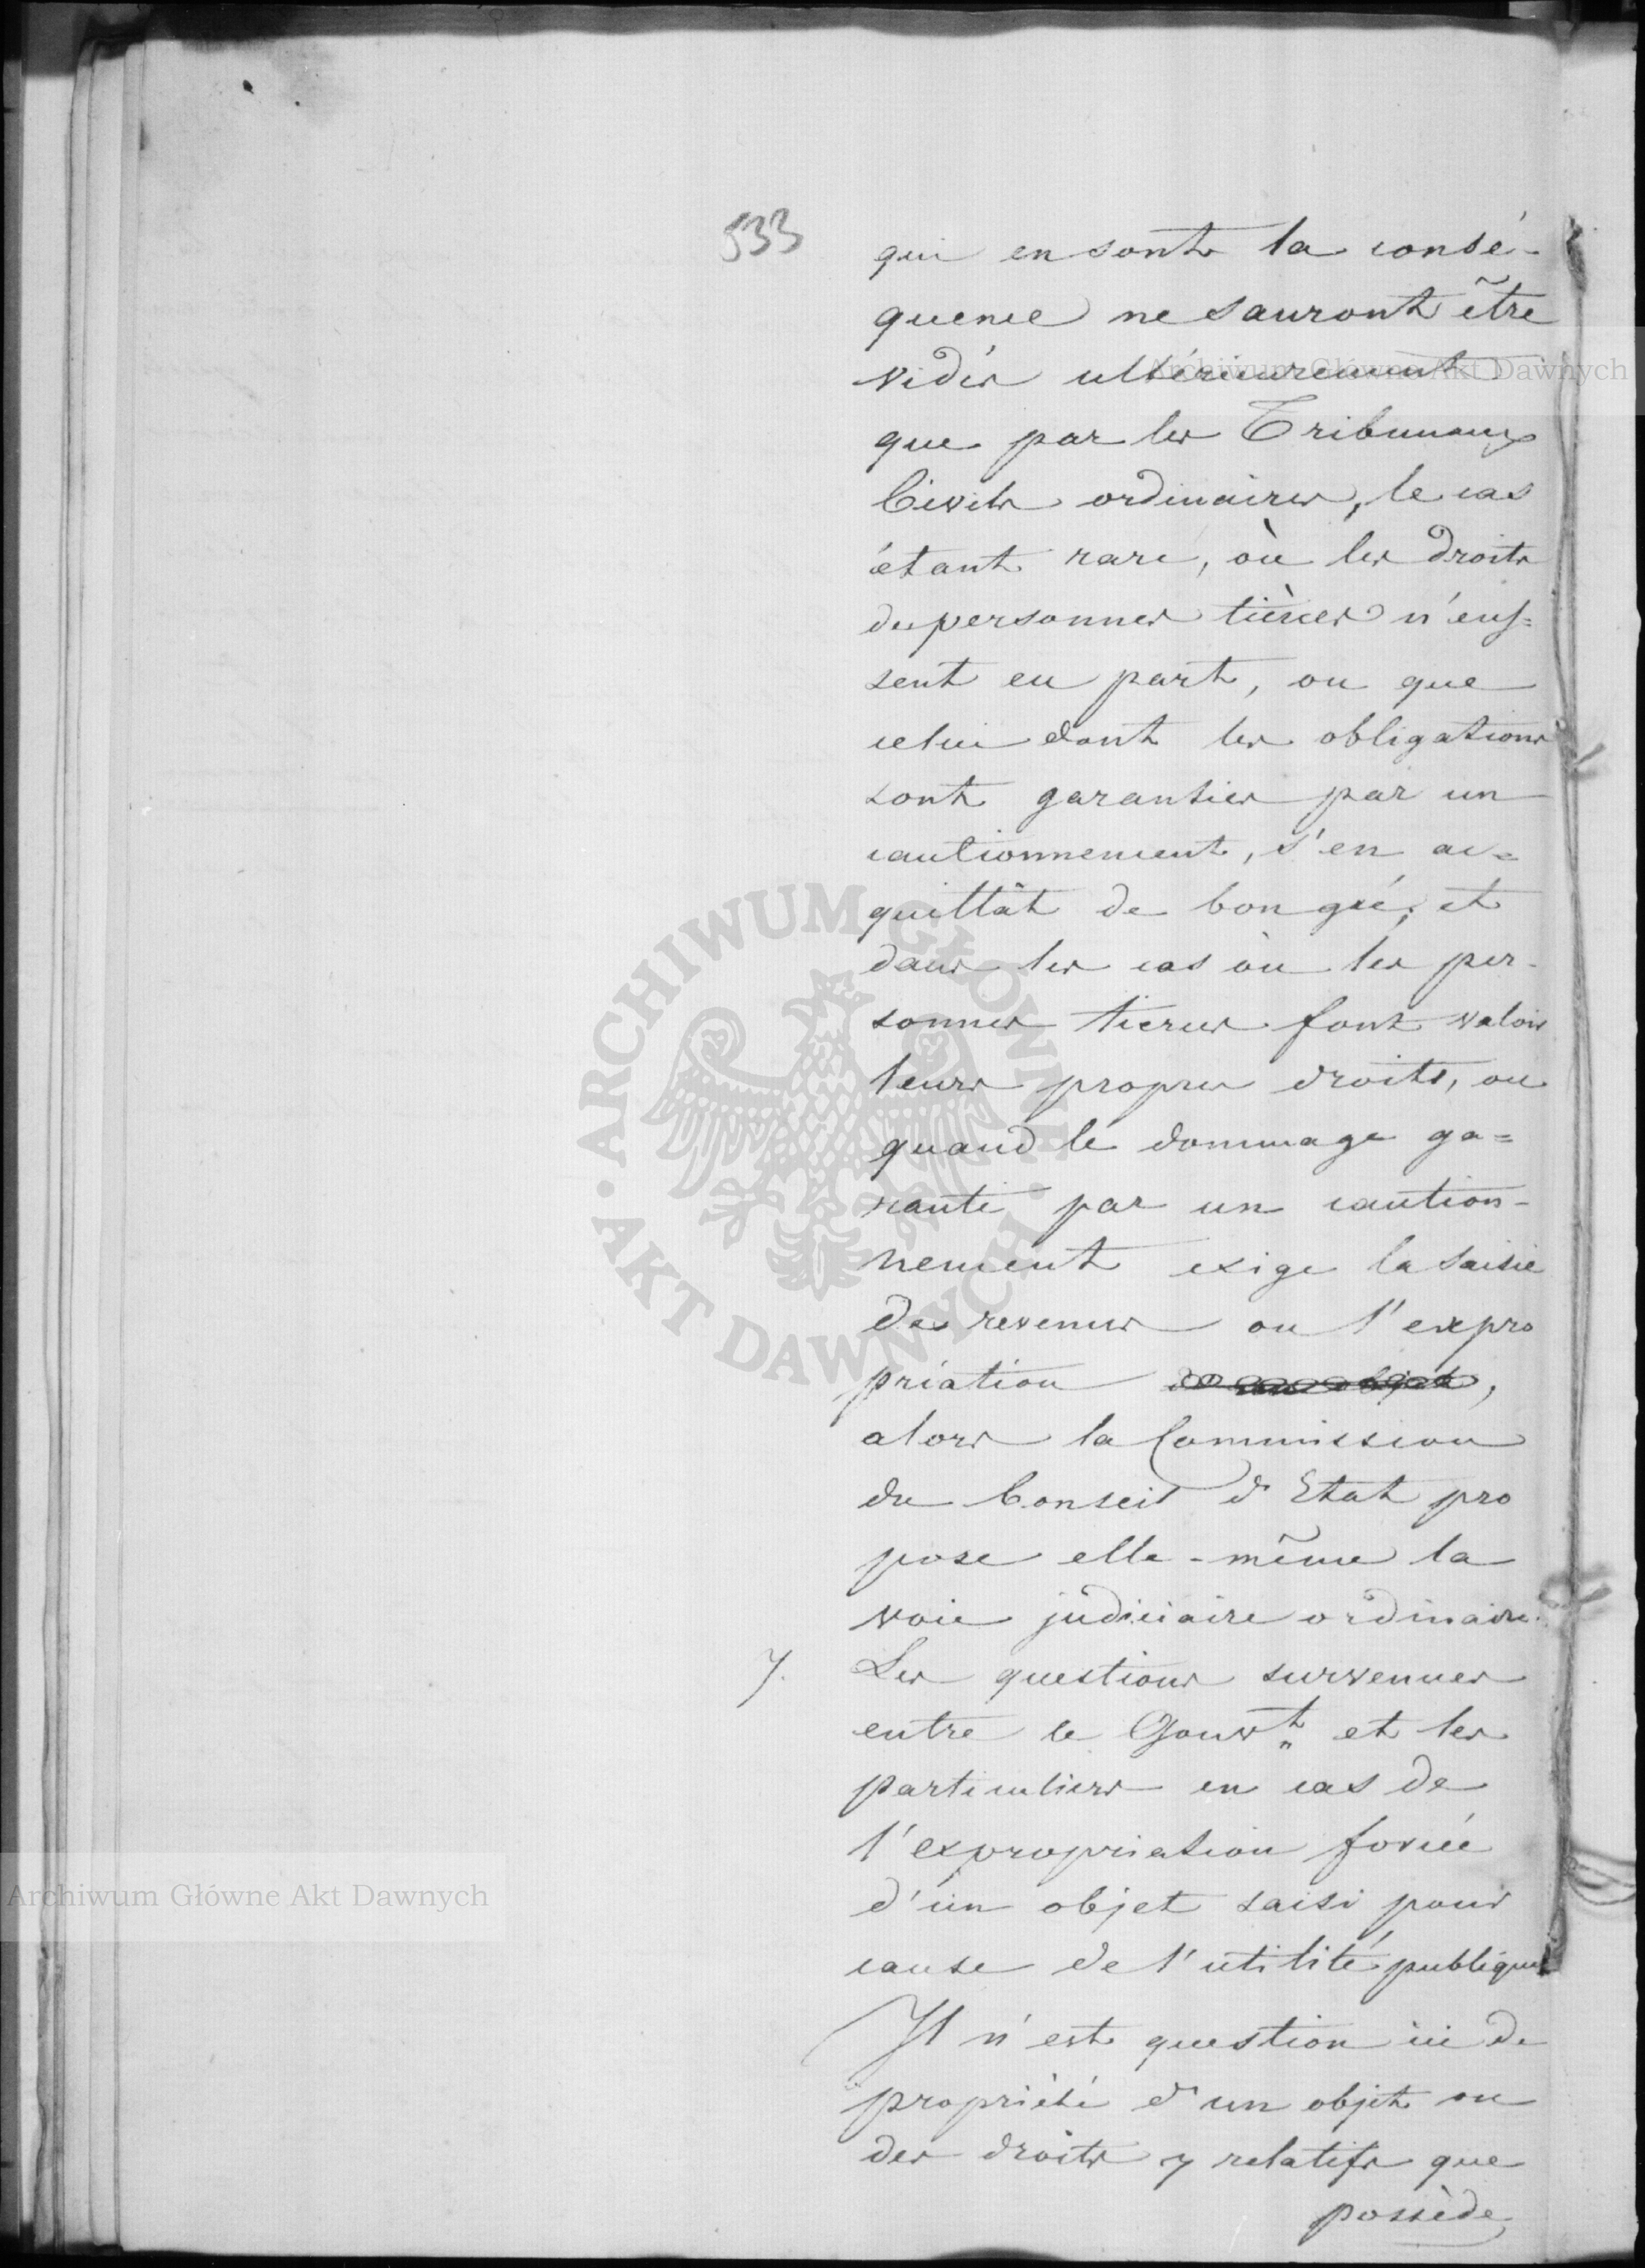 533
qui en sont la consé-
quence ne sauront être
vidés ultérieurement
que par les Tribunaux
Civils ordinaires, le cas
étant rare, où les droits
des personnes tièrces n'eus=
sent eu part, ou que
celui dont les obligations
sont garanties par un
cautionnement, s'en ac=
quittât de bon gré; et
dans les cas où les per-
sonnes tierces font valoir
leurs propres droits, ou
quand le dommage ga=
ranti par un caution-
nement exige la saisie
des revenus ou l'expro
priation ,
alors la Commission
du Conseil d'Etat pro
pose elle-même la
voie judiciaire ordinaire.
7. Les questions survenues
entre le Gouvt et les
particuliers en cas de
l'expropriation forcée
d'un objet saisi pour
cause de l'utilité publique
Il n'est question ici de
propriété d'un objet ou
des droits y relatifs que
possède
Archiwum Główne Akt Dawnych
ARCHIWUM GŁÓWNE · AKT DAWNYCH ·
Archiwum Główne Akt Dawnych